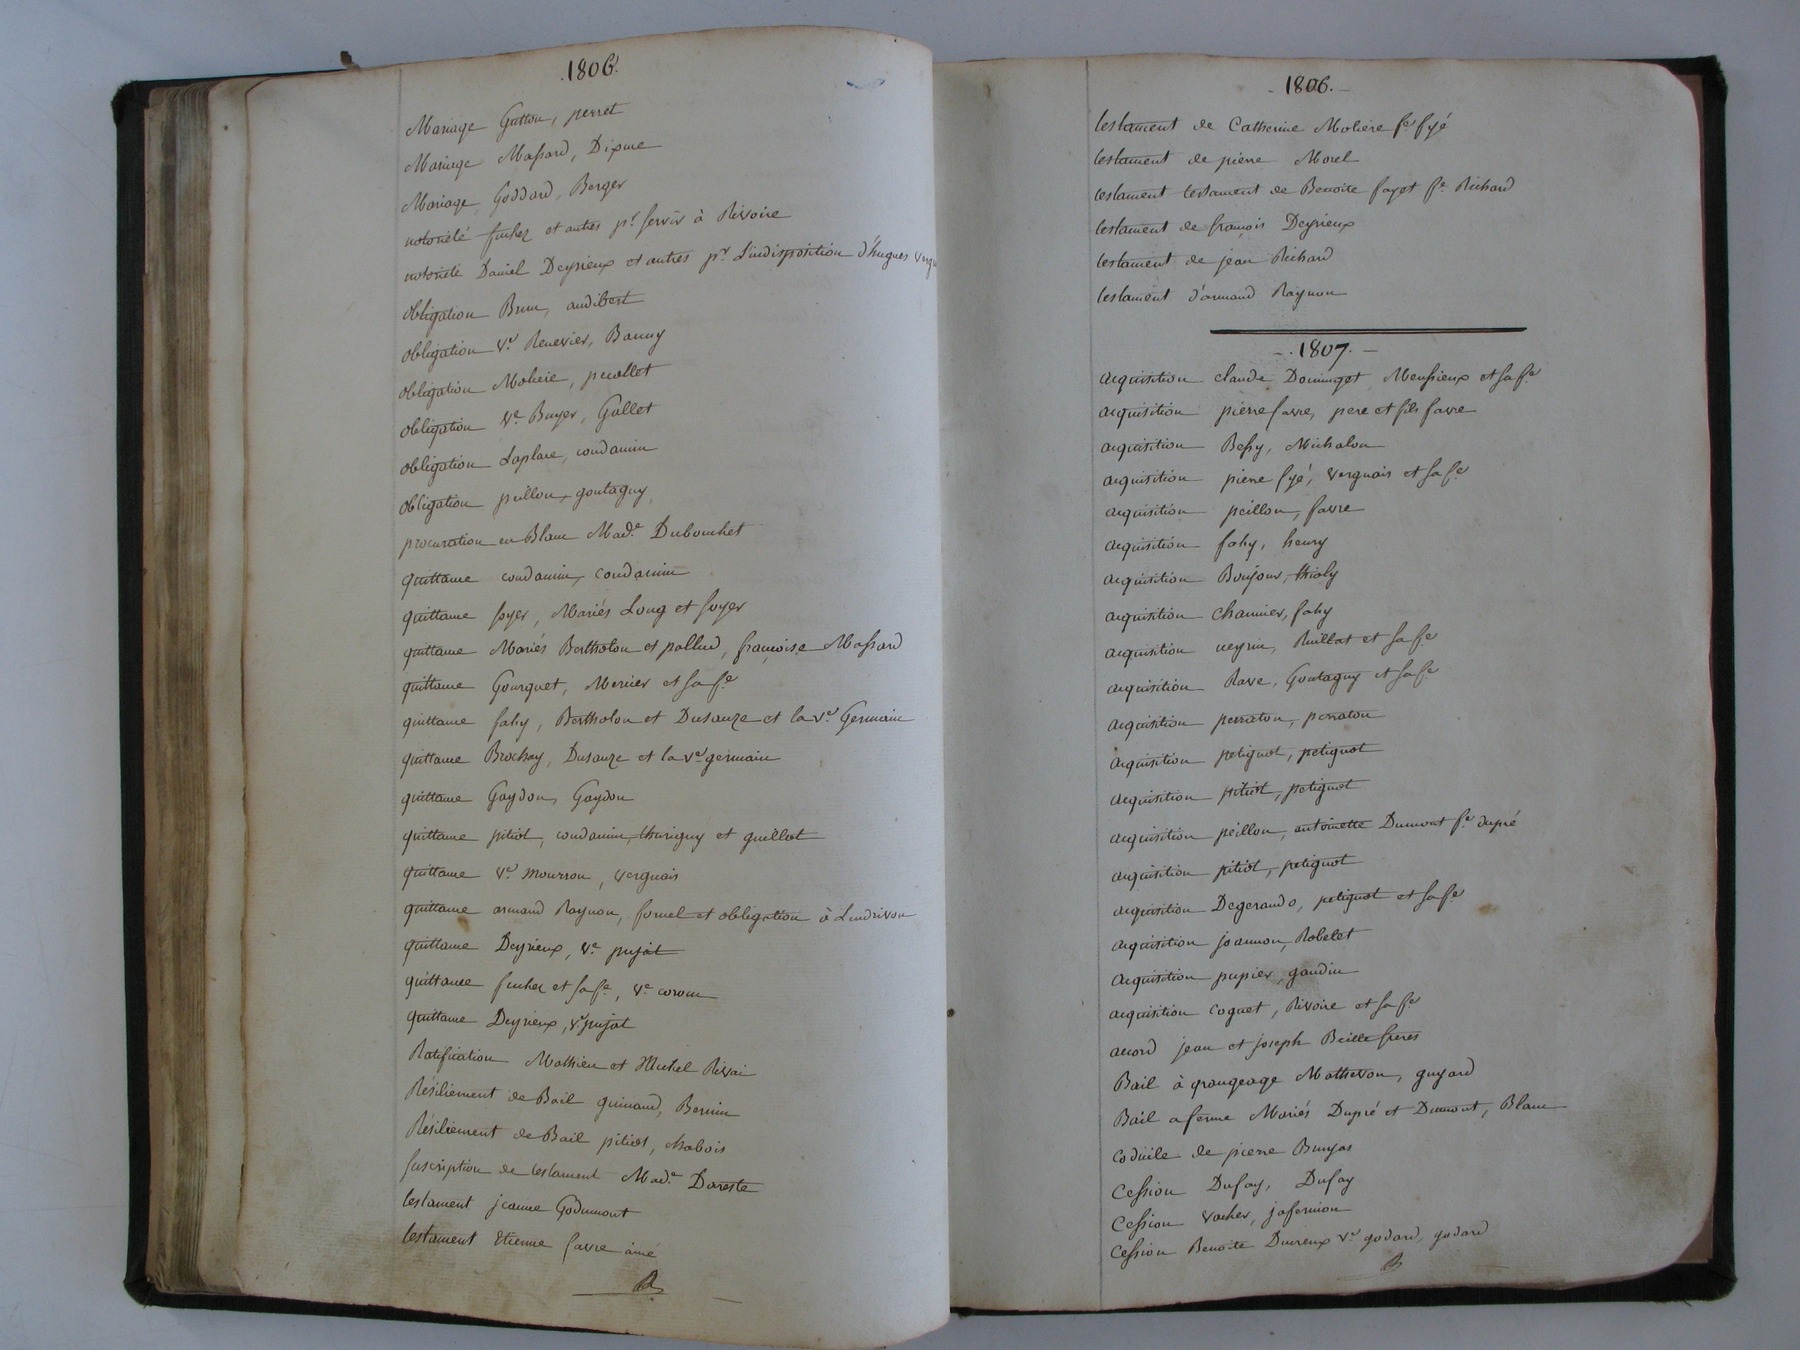 .1806.
Mariage Gutton, perret
Mariage Massard, Dixme
Mariage Goddard, Berger
notorieté fucher et autres pr. servir à Rivoire
notorieté Daniel Deyrieux et autres pr. L'indisposition d'hugues
obligation Brun, audibert
obligation Ve. Renevier, Banny
obligation Moliere, pecollet
obligation Ve. Buyer, Gallet
obligation Laplace, condamin
obligation peillon, goutagny
procuration en Blanc Made. Dubouchet
quittance condamin, condamin
quittance soyer, Mariés Long et soyer
quittance Mariés Bertholon et pallud, françoise Massard
quittance Gourguet, Mercier et sa fe.
quittance fahy, Bertholon et Dusauze et la ve. Germain
quittance Brochay, Dusauze et la ve germain
quittance Gaydon, Gaydon
quittance pitiot, condamin, thurigny et guillot
quittance Ve. Mourron, verguais
quittance armand Raynon, fornel et obligation à Landrivon
quittance Deyrieux, Ve. pujat
quittance fucher et sa fe., Ve. coron
quittance Deyrieux, Ve. pujat
Ratification Mathieu et Michel Rivai
Résiliement de Bail guinand, Bernin
Résiliement de Bail pitiot, chabois
suscription de testament Made. Dareste
testament jeanne Godumont
testament Etienne favre ainé
1806.
testament de Catherine Moliere fe. fyé
testament de pierre Morel
testament testament de Benoite fayet fe. Richard
testament de françois Deyrieux
testament de jean Richard
testament d'armand Raynon
1807.
acquisition claude Dominget, Messieux et sa fe.
acquisition pierre favre, pere et fils favre
acquisition Bessy, Michalon
acquisition pierre fyé, verguais et sa fe.
acquisition peillon, favre
acquisition fahy, henry
acquisition Bonjour, thioly
acquisition chamier, fahy
acquisition neyrin, Ruillat et sa fe.
acquisition Rave, Goutagny et sa fe
acquisition perraton, perraton
acquisition petignot, petignot
acquisition pitiot, petignot
acquisition peillon, antoinette Dumont fe. dupré
acquisition pitiot, petignot
acquisition Degerando, petignot et sa fe.
acquisition joannon, Robelet
acquisition pupier, gaudin
acquisition coquet, Rivoire et sa fe
accord jean et joseph Baille freres
Bail à grangeage Mathevon, guyard
Bail a ferme Mariés Dupré et Dumont, Blanc
codicile de pierre Bunyas
Cession Dufay, Dufay
Cession vacher, jafermion
Cession Benoite Ducreux ve. godard, godard